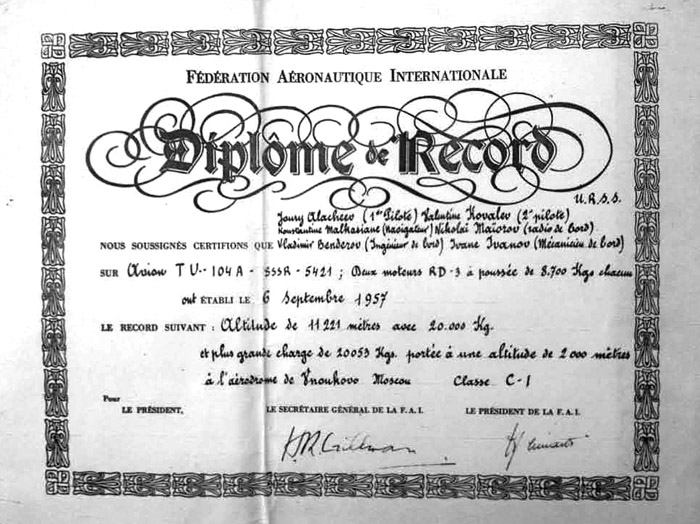 FÉDÉRATION AÉRONAUTIQUE INTERNATIONALE
Diplôme de Record
U.R.S.S.
Joury Alacheev (1er Pilote) Valentine Kovalev (2e pilote)
Konstantine Malkhasiane (Navigateur) Nikolaï Maïorov (radio de bord)
NOUS SOUSSIGNÉS CERTIFIONS QUE Vladimir Benderov (Ingénieur de bord) Ivane Ivanov (Mécanicien de bord)
SUR Avion TU-104A - SSSR - 5421 ; Deux moteurs RD-3 à poussée de 8.700 Kgs chacun
ont ÉTABLI LE 6 Septembre 1957
LE RECORD SUIVANT : Altitude de 11221 mètres avec 20.000 Kg.
et plus grande charge de 20053 Kgs. portée à une altitude de 2000 mètres
à l'aérodrome de Vnoukovo Moscou Classe C-1
Pour
LE PRÉSIDENT, LE SECRÉTAIRE GÉNÉRAL DE LA F.A.I. LE PRÉSIDENT DE LA F.A.I.